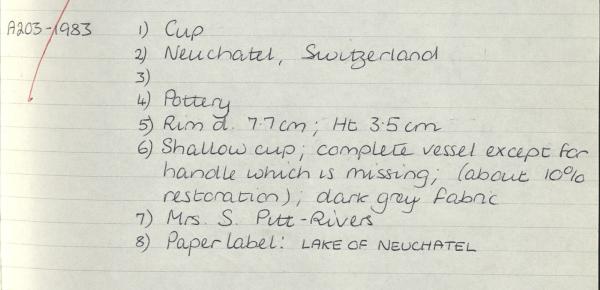 A203-1983 1) Cup
2) Neuchatel, Switzerland
3)
4) Pottery
5) Rim d. 7.7cm; Ht 3.5cm
6) Shallow cup; complete vessel except for
handle which is missing; (about 10%
restoration); dark grey fabric
7) Mrs. S. Pitt-Rivers
8) Paper label: LAKE OF NEUCHATEL